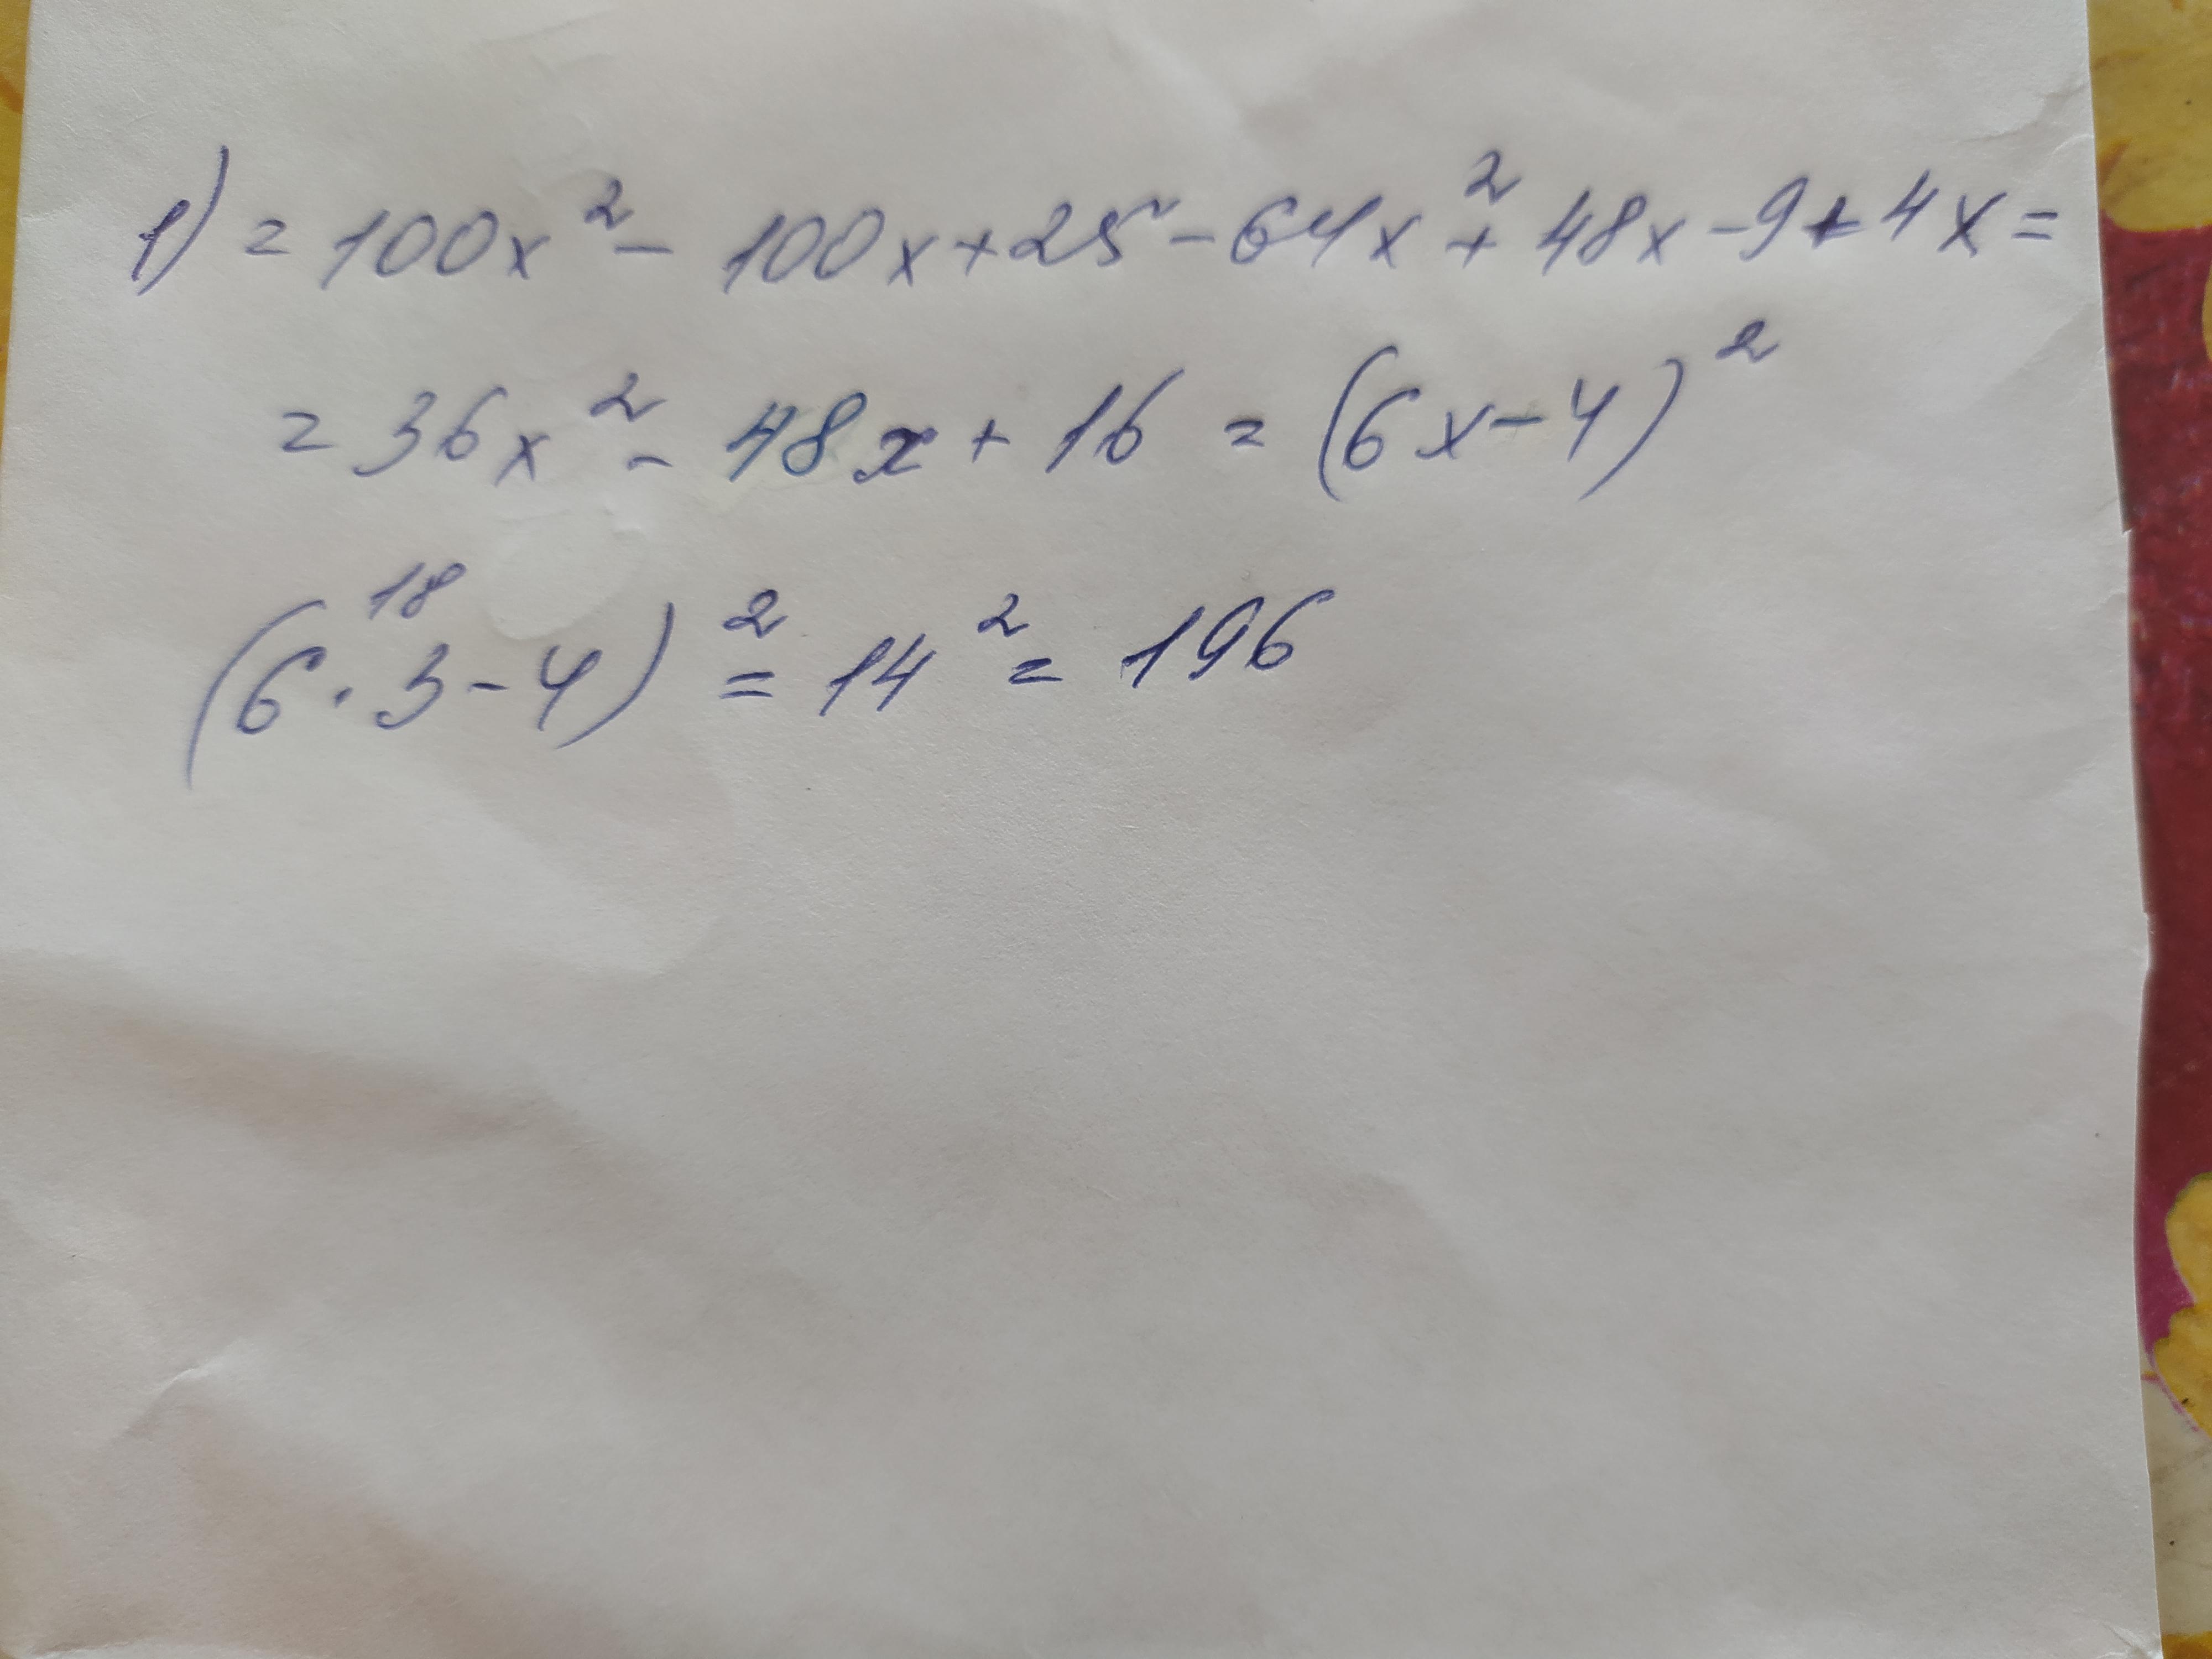 1) = 100x² - 100x + 25 - 64x² + 48x - 9 + 4x =
= 36x² - 48x + 16 = (6x - 4)²
18
(6 · 3 - 4)² = 14² = 196